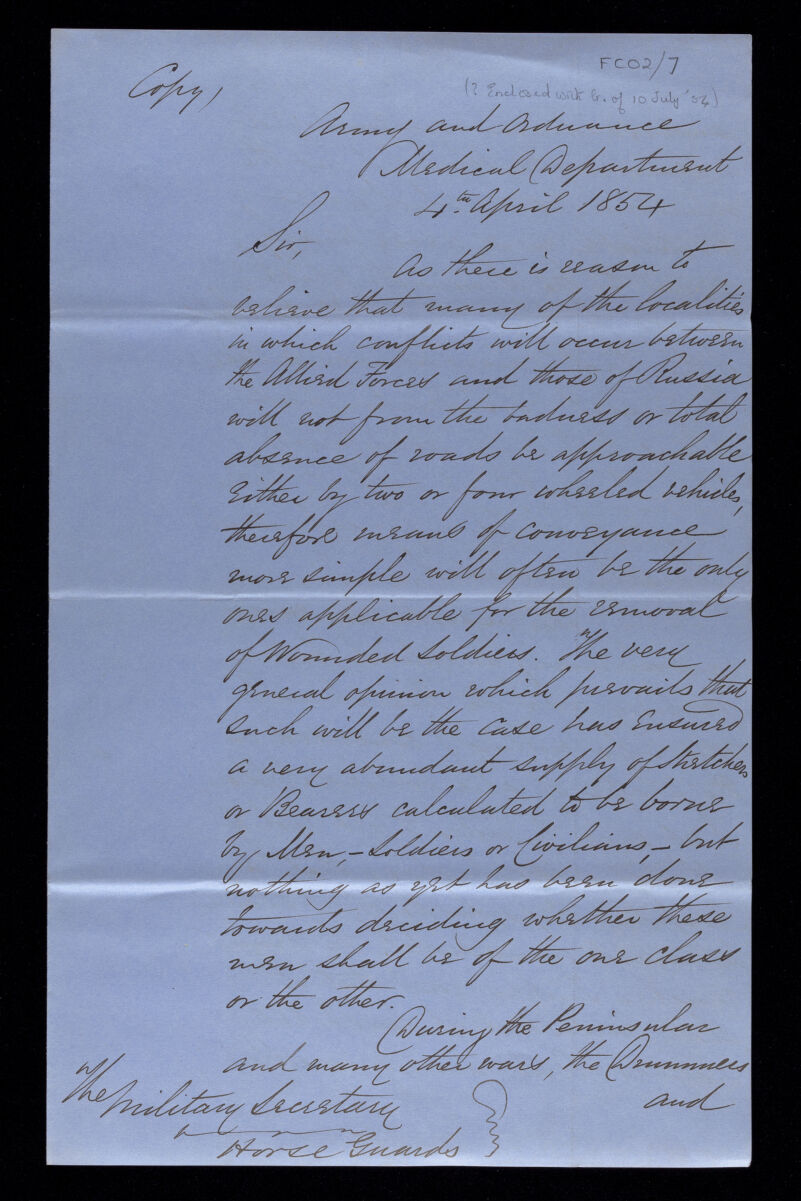 FCO2/7
(? Enclosed with lr. of 10 July '54)
Copy,
Army and Ordnance
Medical Department
4th. April 1854
Sir,
As there is reason to
believe that many of the localities
in which conflicts will occur between
the Allied Forces and those of Russia
will not from the badness or total
absence of roads be approachable
either by two or four wheeled vehicles,
therefore means of conveyance
more simple will often be the only
ones applicable for the removal
of Wounded Soldiers. The very
general opinion which prevails that
such will be the case has ensured
a very abundant supply of Stretchers
or Bearers calculated to be borne
by Men, - Soldiers or Civilians, - but
nothing as yet has been done
towards deciding whether these
men shall be of the one class
or the other.
During the Peninsular
and many other wars, the Drummers
and
The Military Secretary
Horse Guards